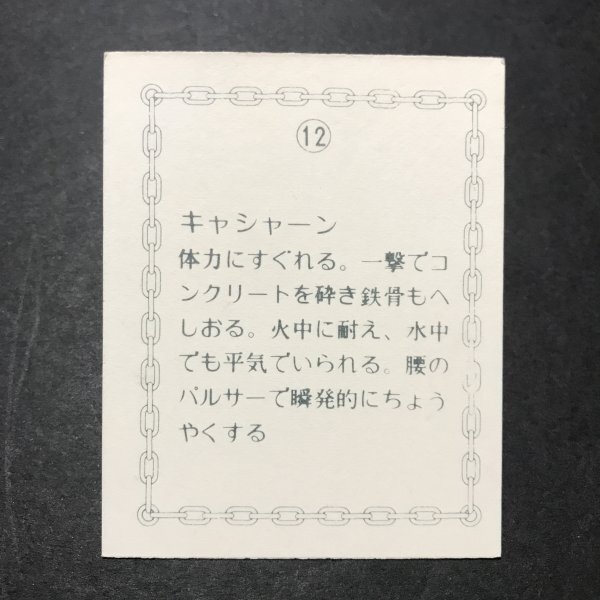 12
キャシャーン
体力にすぐれる。一撃でコ
ンクリートを砕き鉄骨もへ
しおる。火中に耐え、水中
でも平気でいられる。腰の
パルサーで瞬発的にちょう
やくする